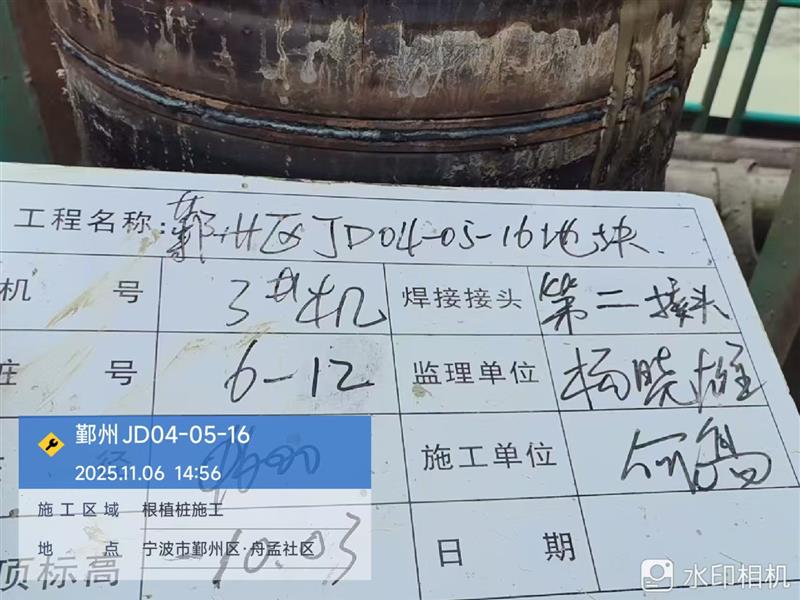 工程名称: 鄞州区JD04-05-16地块.
机 号 3#机 焊接接头 第二接头
桩 号 6-12 监理单位 杨晓雄
施工单位
顶标高 -10.03 日 期
鄞州 JD04-05-16
2025.11.06 14:56
施工区域 根植桩施工
地 点 宁波市鄞州区·舟孟社区
水印相机